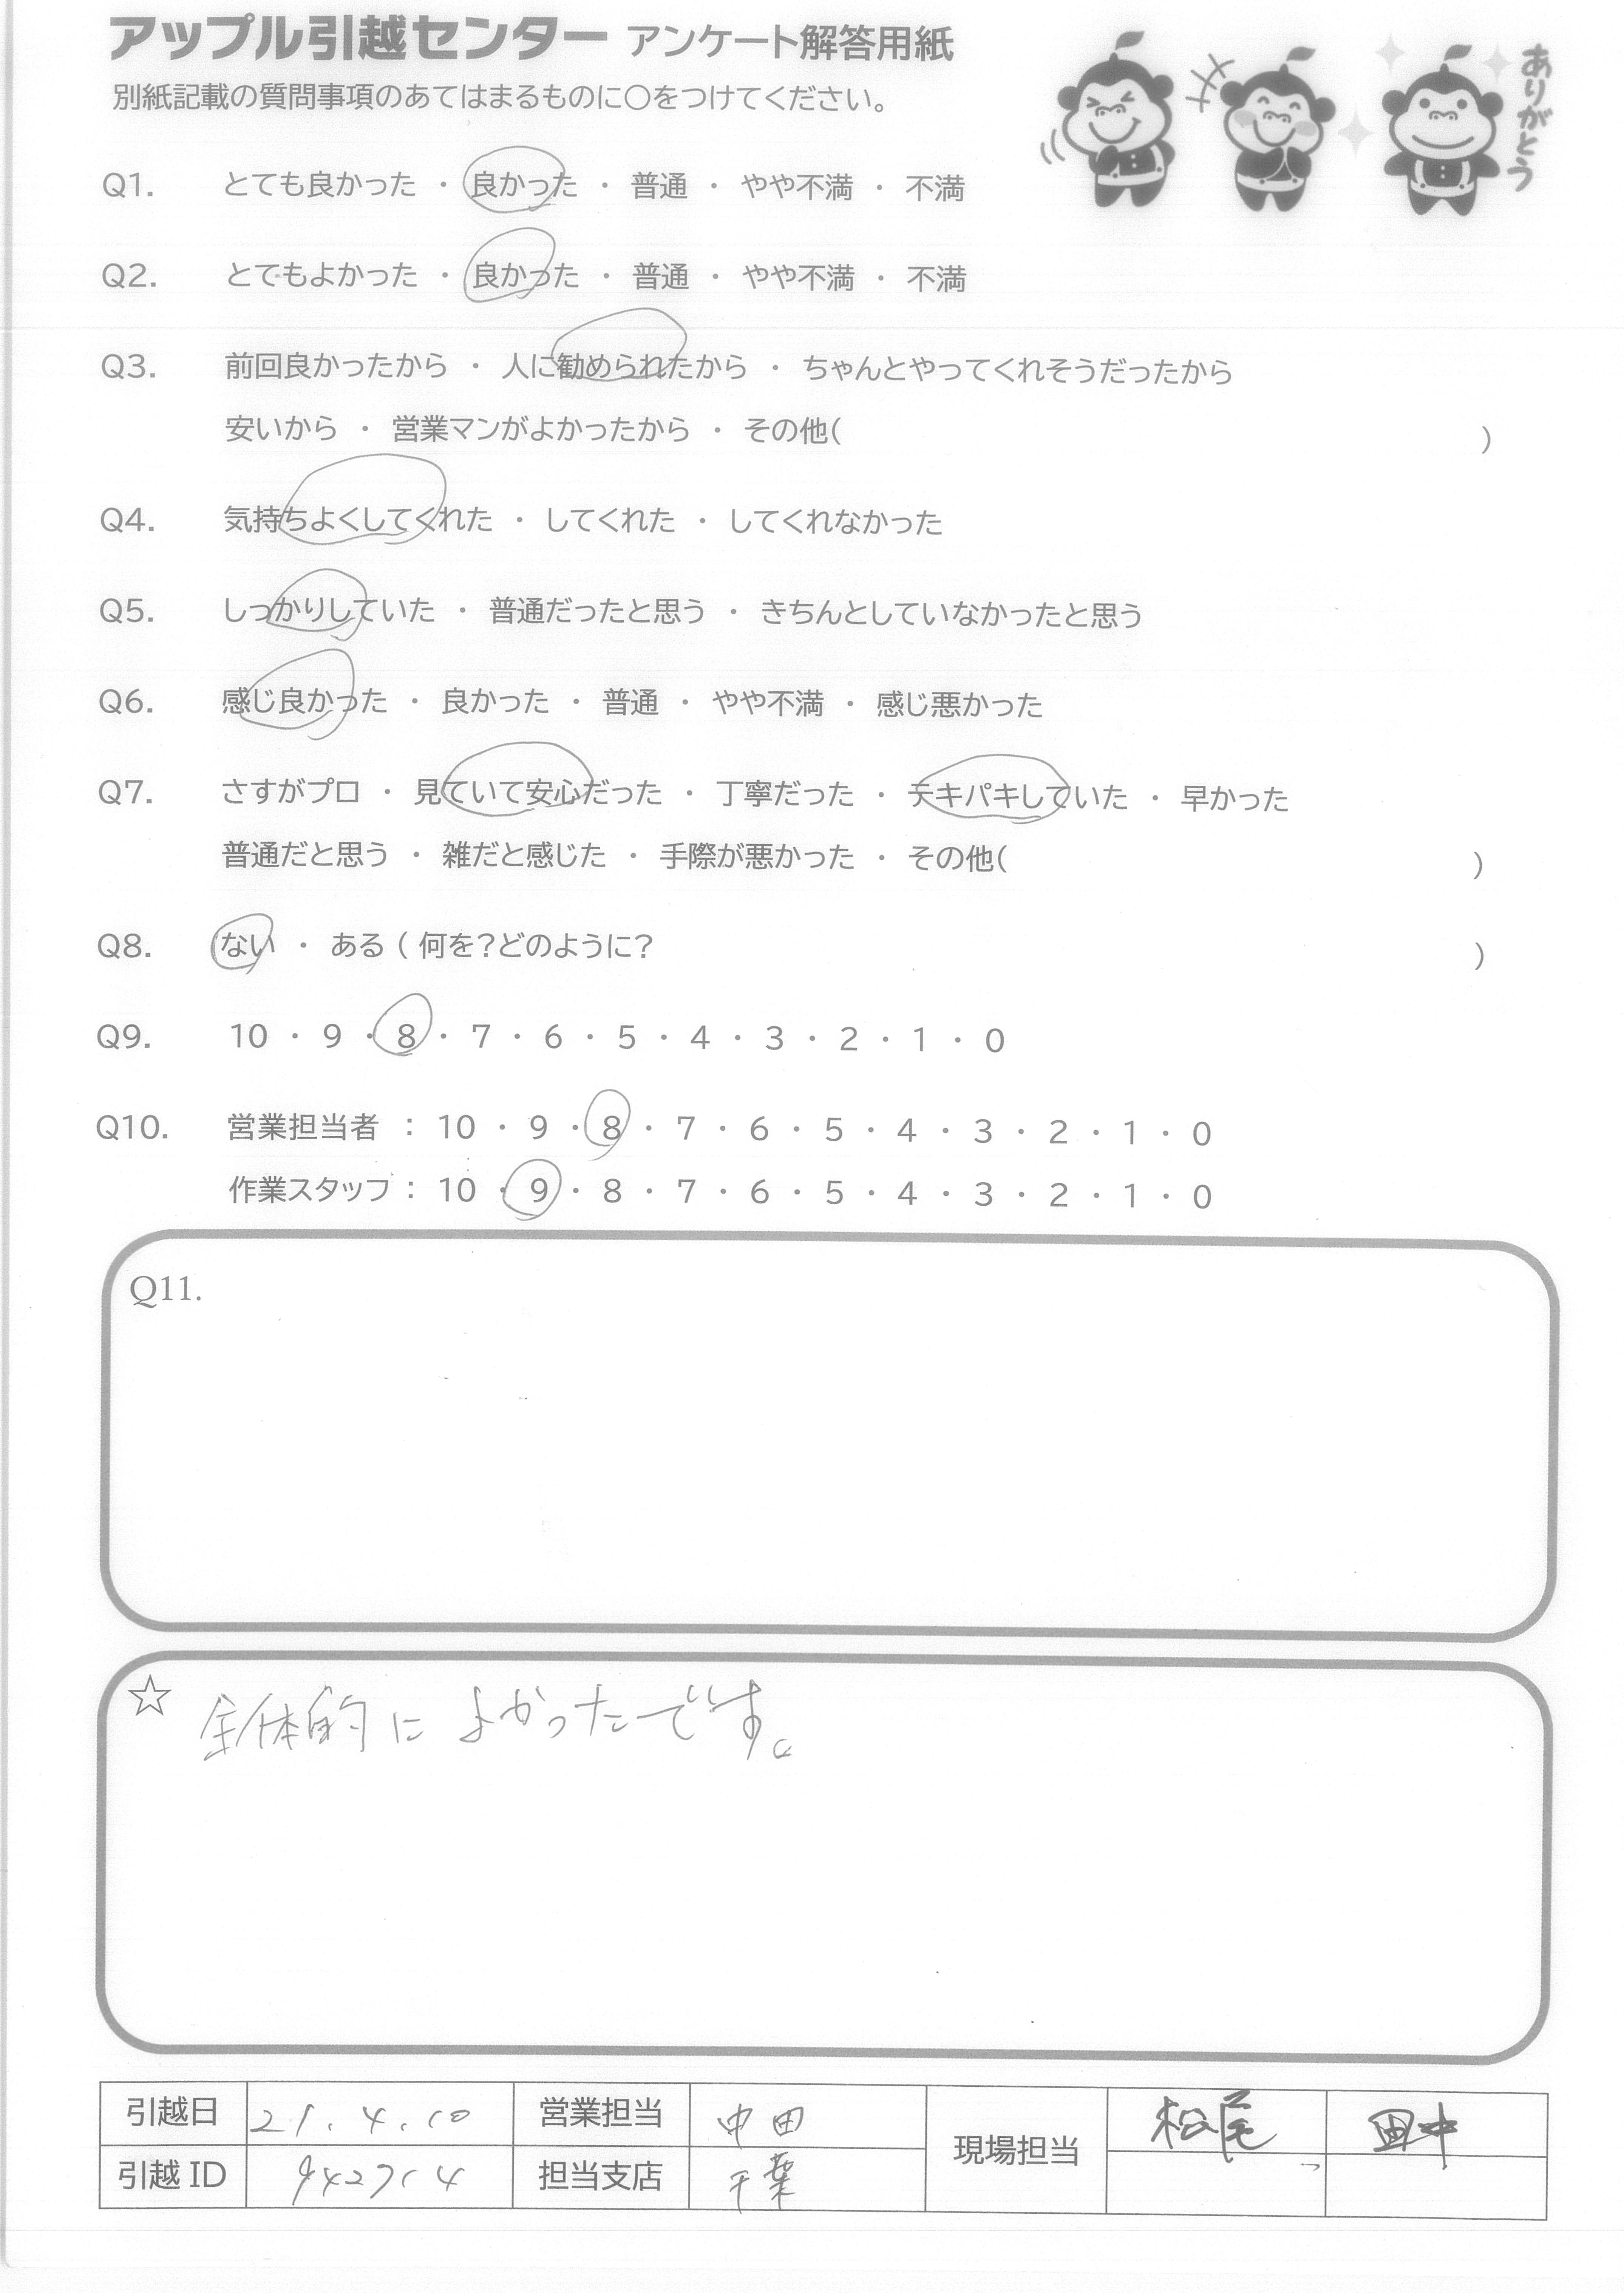 アップル引越センター アンケート解答用紙
別紙記載の質問事項のあてはまるものに〇をつけてください。
ありがとう
Q1. とても良かった ・ 良かった ・ 普通 ・ やや不満 ・ 不満
Q2. とてもよかった ・ 良かった ・ 普通 ・ やや不満 ・ 不満
Q3. 前回良かったから ・ 人に勧められたから ・ ちゃんとやってくれそうだったから
安いから ・ 営業マンがよかったから ・ その他( )
Q4. 気持ちよくしてくれた ・ してくれた ・ してくれなかった
Q5. しっかりしていた ・ 普通だったと思う ・ きちんとしていなかったと思う
Q6. 感じ良かった ・ 良かった ・ 普通 ・ やや不満 ・ 感じ悪かった
Q7. さすがプロ ・ 見ていて安心だった ・ 丁寧だった ・ テキパキしていた ・ 早かった
普通だと思う ・ 雑だと感じた ・ 手際が悪かった ・ その他( )
Q8. ない ・ ある ( 何を?どのように? )
Q9. 10 ・ 9 ・ 8 ・ 7 ・ 6 ・ 5 ・ 4 ・ 3 ・ 2 ・ 1 ・ 0
Q10. 営業担当者 : 10 ・ 9 ・ 8 ・ 7 ・ 6 ・ 5 ・ 4 ・ 3 ・ 2 ・ 1 ・ 0
作業スタッフ : 10 ・ 9 ・ 8 ・ 7 ・ 6 ・ 5 ・ 4 ・ 3 ・ 2 ・ 1 ・ 0
Q11.
☆ 全体的に よかったです。
引越日 21.4.10 営業担当 中田 現場担当 松尾 田中
引越 ID 担当支店 千葉